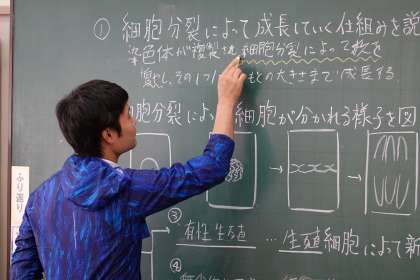 ① 細胞分裂によって成長していく仕組みを説
染色体が複製され細胞分裂によって数を
増やし、その1つ1つがもとの大きさまで成長する。
細胞分裂によって細胞が分かれる様子を図
ふり返り
③ 有性生殖 … 生殖細胞によって新
④